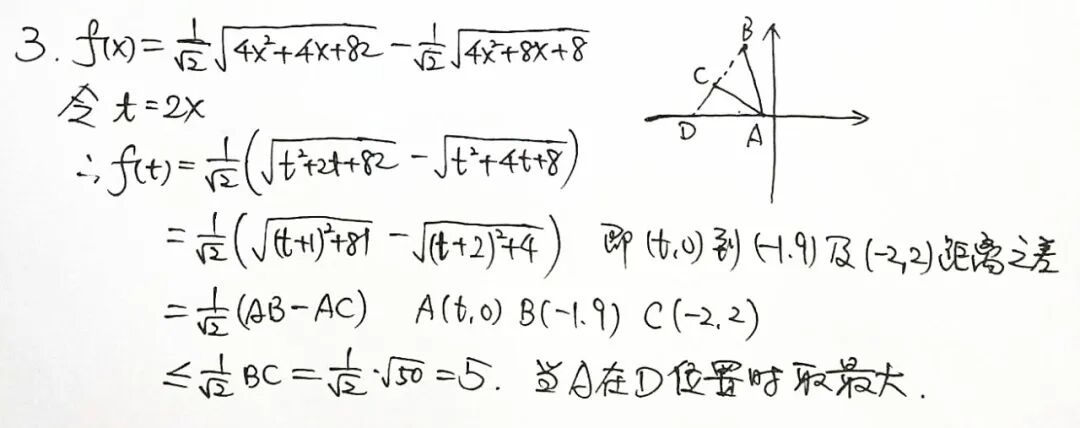 3. f(x)=1/√2 √(4x²+4x+82) - 1/√2 √(4x²+8x+8)
令 t=2x
∴ f(t)=1/√2 (√(t²+2t+82) - √(t²+4t+8))
=1/√2 (√((t+1)²+81) - √((t+2)²+4)) 即(t,0)到(-1.9)及(-2,2)距离之差
=1/√2 (AB-AC) A(t,0) B(-1.9) C(-2.2)
≤1/√2 BC=1/√2 ·√50=5. 当A在D位置时取最大.
B
C
D
A